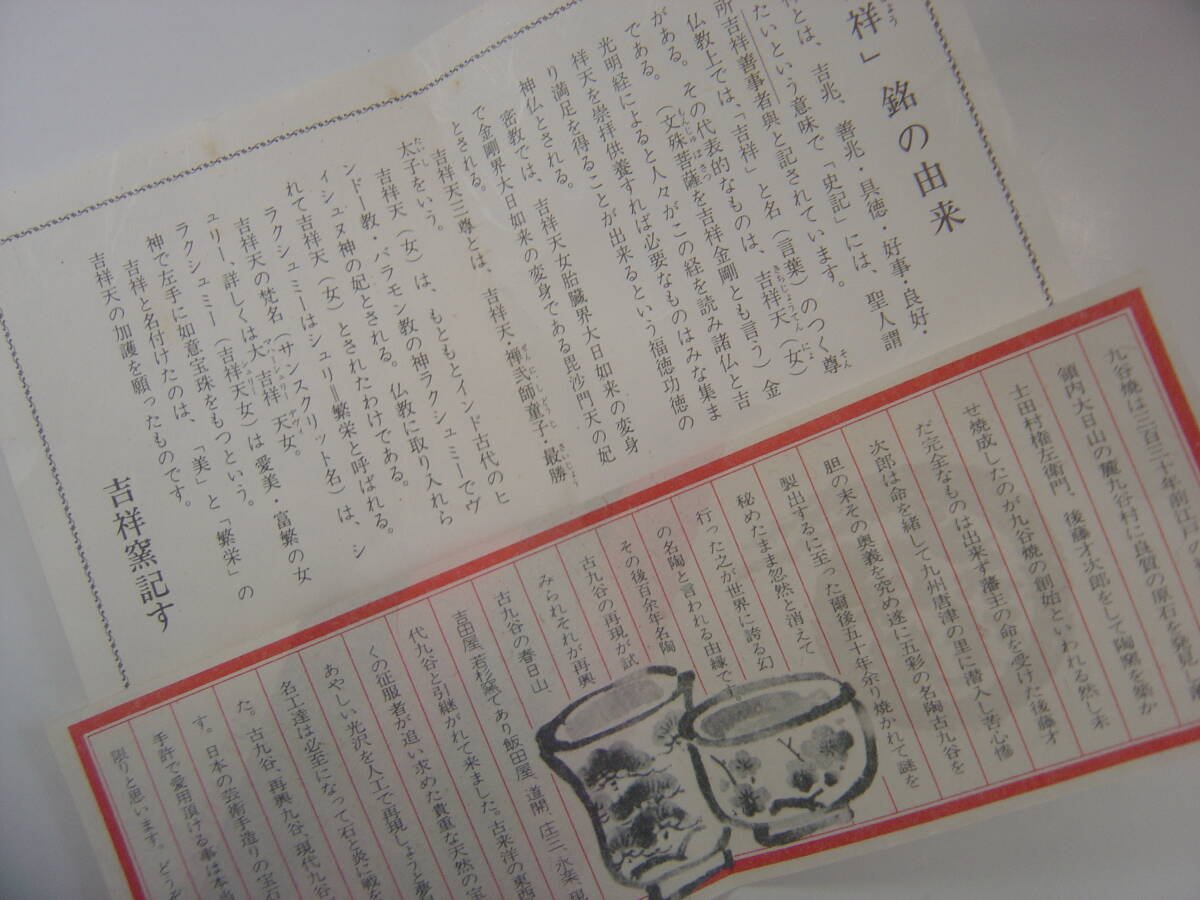 祥」銘の由来
とは、吉兆、善兆・具徳・好事・良好・
たいという意味で「史記」には、聖人謂
所吉祥善事者與と記されています。
仏教上では、「吉祥」と名(言葉)のつく尊
がある。その代表的なものは、吉祥天(女)
である。(文殊菩薩を吉祥金剛とも言う)金
光明経によると人々がこの経を読み諸仏と吉
祥天を崇拝供養すれば必要なものはみな集ま
り満足を得ることが出来るという福徳功徳の
神仏とされる。
密教では、吉祥天女胎臓界大日如来の変身
で金剛界大日如来の変身である毘沙門天の妃
とされる。
吉祥天三尊とは、吉祥天・禅弐師童子・最勝
太子をいう。
吉祥天(女)は、もともとインド古代のヒ
ンドー教・バラモン教の神ラクシュミーでヴ
ィシュヌ神の妃とされる。仏教に取り入れら
れて吉祥天(女)とされたわけである。
ラクシュミーはシュリー=繁栄と呼ばれる。
吉祥天の梵名(サンスクリット名)は、シ
ュリー、詳しくは大吉祥天女。
ラクシュミー(吉祥天女)は愛美・富繁の女
神で左手に如意宝珠をもつという。
吉祥と名付けたのは、「美」と「繁栄」の
吉祥天の加護を願ったものです。
吉祥窯記す
九谷焼は三百三十年前江戸の
領内大日山の麓九谷村に良質の原石を発見
土田村権左衛門、後藤才次郎をして陶窯を築か
せ焼成したのが九谷焼の創始といわれる然し未
だ完全なものは出来ず藩主の命を受けた後藤才
次郎は命を緒して九州唐津の里に潜入し苦心惨
胆の末その奥義を究め遂に五彩の名陶古九谷を
製出するに至った爾後五十年余り焼かれて謎を
秘めたまま忽然と消えて
行った之が世界に誇る幻
の名陶と言われる由縁です
その後百余年名陶
古九谷の再現が試
みられそれが再興
古九谷の春日山、
吉田屋、若杉窯であり飯田屋、道開、庄三、永楽、現
代九谷と引継がれて来ました。古来洋の東西
くの征服者が追い求めた貴重な天然の宝
あやしい光沢を人工で再現しょうと夢
名工達は必至になって石と炎に戦を
た。古九谷、再興九谷、現代九谷
す。日本の芸術手造りの宝石
手許で愛用頂ける事は本当
限りと思います。どうぞ